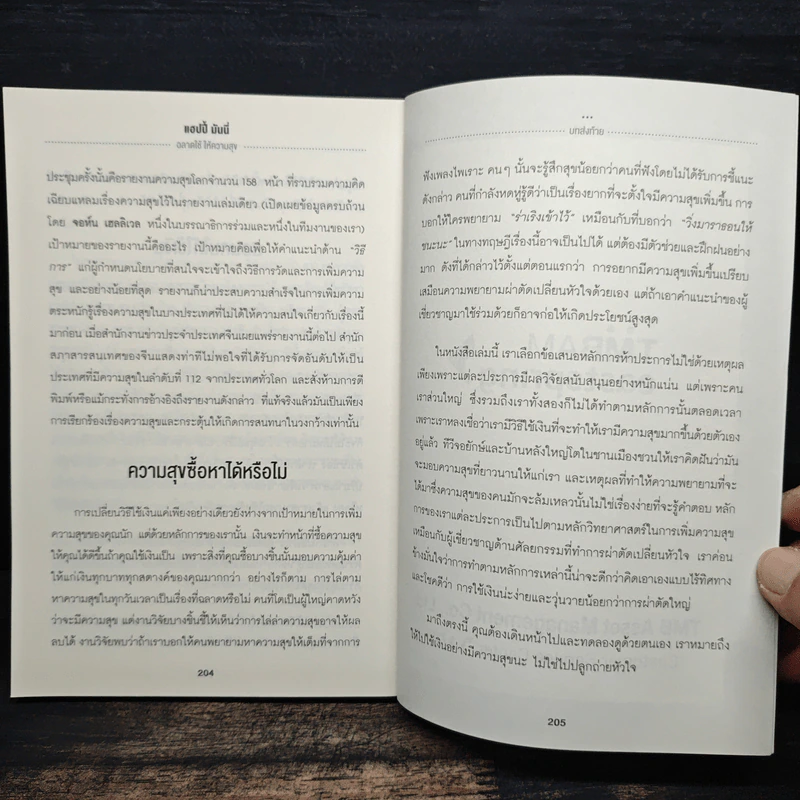 แฮปปี้ มันนี่
ฉลาดใช้ ให้ความสุข
ประชุมครั้งนั้นคือรายงานความสุขโลกจำนวน 158 หน้า ที่รวบรวมความคิด
เฉียบแหลมเรื่องความสุขไว้ในรายงานเล่มเดียว (เปิดเผยข้อมูลครบถ้วน
โดย จอห์น เฮลลิเวล หนึ่งในบรรณาธิการร่วมและหนึ่งในทีมงานของเรา)
เป้าหมายของรายงานนี้คืออะไร เป้าหมายคือเพื่อให้คำแนะนำด้าน "วิธี
การ" แก่ผู้กำหนดนโยบายที่สนใจจะเข้าใจถึงวิธีการวัดและการเพิ่มความ
สุข และอย่างน้อยที่สุด รายงานก็น่าประสบความสำเร็จในการเพิ่มความ
ตระหนักรู้เรื่องความสุขในบางประเทศที่ไม่ได้ให้ความสนใจเกี่ยวกับเรื่องนี้
มาก่อน เมื่อสำนักงานข่าวประจำประเทศจีนเผยแพร่รายงานนี้ต่อไป สำนัก
สภาสารสนเทศของจีนแสดงท่าทีไม่พอใจที่ได้รับการจัดอันดับให้เป็น
ประเทศที่มีความสุขในลำดับที่ 112 จากประเทศทั่วโลก และสั่งห้ามการตี
พิมพ์หรือแม้กระทั่งการอ้างอิงถึงรายงานดังกล่าว ที่แท้จริงแล้วมันเป็นเพียง
การเรียกร้องเรื่องความสุขและกระตุ้นให้เกิดการสนทนาในวงกว้างเท่านั้น
ความสุขซื้อหาได้หรือไม่
การเปลี่ยนวิธีใช้เงินแค่เพียงอย่างเดียวยังห่างจากเป้าหมายในการเพิ่ม
ความสุขของคุณนัก แต่ด้วยหลักการของเรานั้น เงินจะทำหน้าที่ซื้อความสุข
ให้คุณได้ดีขึ้นถ้าคุณใช้เงินเป็น เพราะสิ่งที่คุณซื้อบางชิ้นนั้นมอบความคุ้มค่า
ให้แก่เงินทุกบาททุกสตางค์ของคุณมากกว่า อย่างไรก็ตาม การไล่ตาม
หาความสุขในทุกวันเวลาเป็นเรื่องที่ฉลาดหรือไม่ คนที่โตเป็นผู้ใหญ่คาดหวัง
ว่าจะมีความสุข แต่งานวิจัยบางชิ้นชี้ให้เห็นว่าการไล่ล่าความสุขอาจให้ผล
ลบได้ งานวิจัยพบว่าถ้าเราบอกให้คนพยายามหาความสุขให้เต็มที่จากการ
204
บทส่งท้าย
ฟังเพลงไพเราะ คนๆ นั้นจะรู้สึกสุขน้อยกว่าคนที่ฟังโดยไม่ได้รับการชี้แนะ
ดังกล่าว คนที่กำลังหดหู่รู้ดีว่าเป็นเรื่องยากที่จะตั้งใจมีความสุขเพิ่มขึ้น การ
บอกให้ใครพยายาม "ร่าเริงเข้าไว้" เหมือนกับที่บอกว่า "วิ่งมาราธอนให้
ชนะนะ" ในทางทฤษฎีเรื่องนี้อาจเป็นไปได้ แต่ต้องมีตัวช่วยและฝึกฝนอย่าง
มาก ดังที่ได้กล่าวไว้ตั้งแต่ตอนแรกว่า การอยากมีความสุขเพิ่มขึ้นเปรียบ
เสมือนความพยายามผ่าตัดเปลี่ยนหัวใจด้วยเอง แต่ถ้าเอาคำแนะนำของผู้
เชี่ยวชาญมาใช้ร่วมด้วยก็อาจก่อให้เกิดประโยชน์สูงสุด
ในหนังสือเล่มนี้ เราเลือกข้อเสนอหลักการห้าประการไม่ใช่ด้วยเหตุผล
เพียงเพราะแต่ละประการมีผลวิจัยสนับสนุนอย่างหนักแน่น แต่เพราะคน
เราส่วนใหญ่ ซึ่งรวมถึงเราทั้งสองก็ไม่ได้ทำตามหลักการนั้นตลอดเวลา
เพราะเราหลงเชื่อว่าเรามีวิธีใช้เงินที่จะทำให้เรามีความสุขมากขึ้นด้วยตัวเอง
อยู่แล้ว ทีวีจอยักษ์และบ้านหลังใหญ่โตในชานเมืองชวนให้เราคิดฝันว่ามัน
จะมอบความสุขที่ยาวนานให้แก่เรา และเหตุผลที่ทำให้ความพยายามที่จะ
ได้มาซึ่งความสุขของคนมักจะล้มเหลวนั้นไม่ใช่เรื่องง่ายที่จะรู้คำตอบ หลัก
การของเราแต่ละประการเป็นไปตามหลักวิทยาศาสตร์ในการเพิ่มความสุข
เหมือนกับผู้เชี่ยวชาญด้านศัลยกรรมที่ทำการผ่าตัดเปลี่ยนหัวใจ เราค่อน
ข้างมั่นใจว่าการทำตามหลักการเหล่านี้น่าจะดีกว่าคิดเอาเองแบบไร้ทิศทาง
และโชคดีว่า การใช้เงินน่ะง่ายและวุ่นวายน้อยกว่าการผ่าตัดใหญ่
มาถึงตรงนี้ คุณต้องเดินหน้าไปและทดลองดูด้วยตนเอง เราหมายถึง
ให้ไปใช้เงินอย่างมีความสุขนะ ไม่ใช่ไปปลูกถ่ายหัวใจ
205